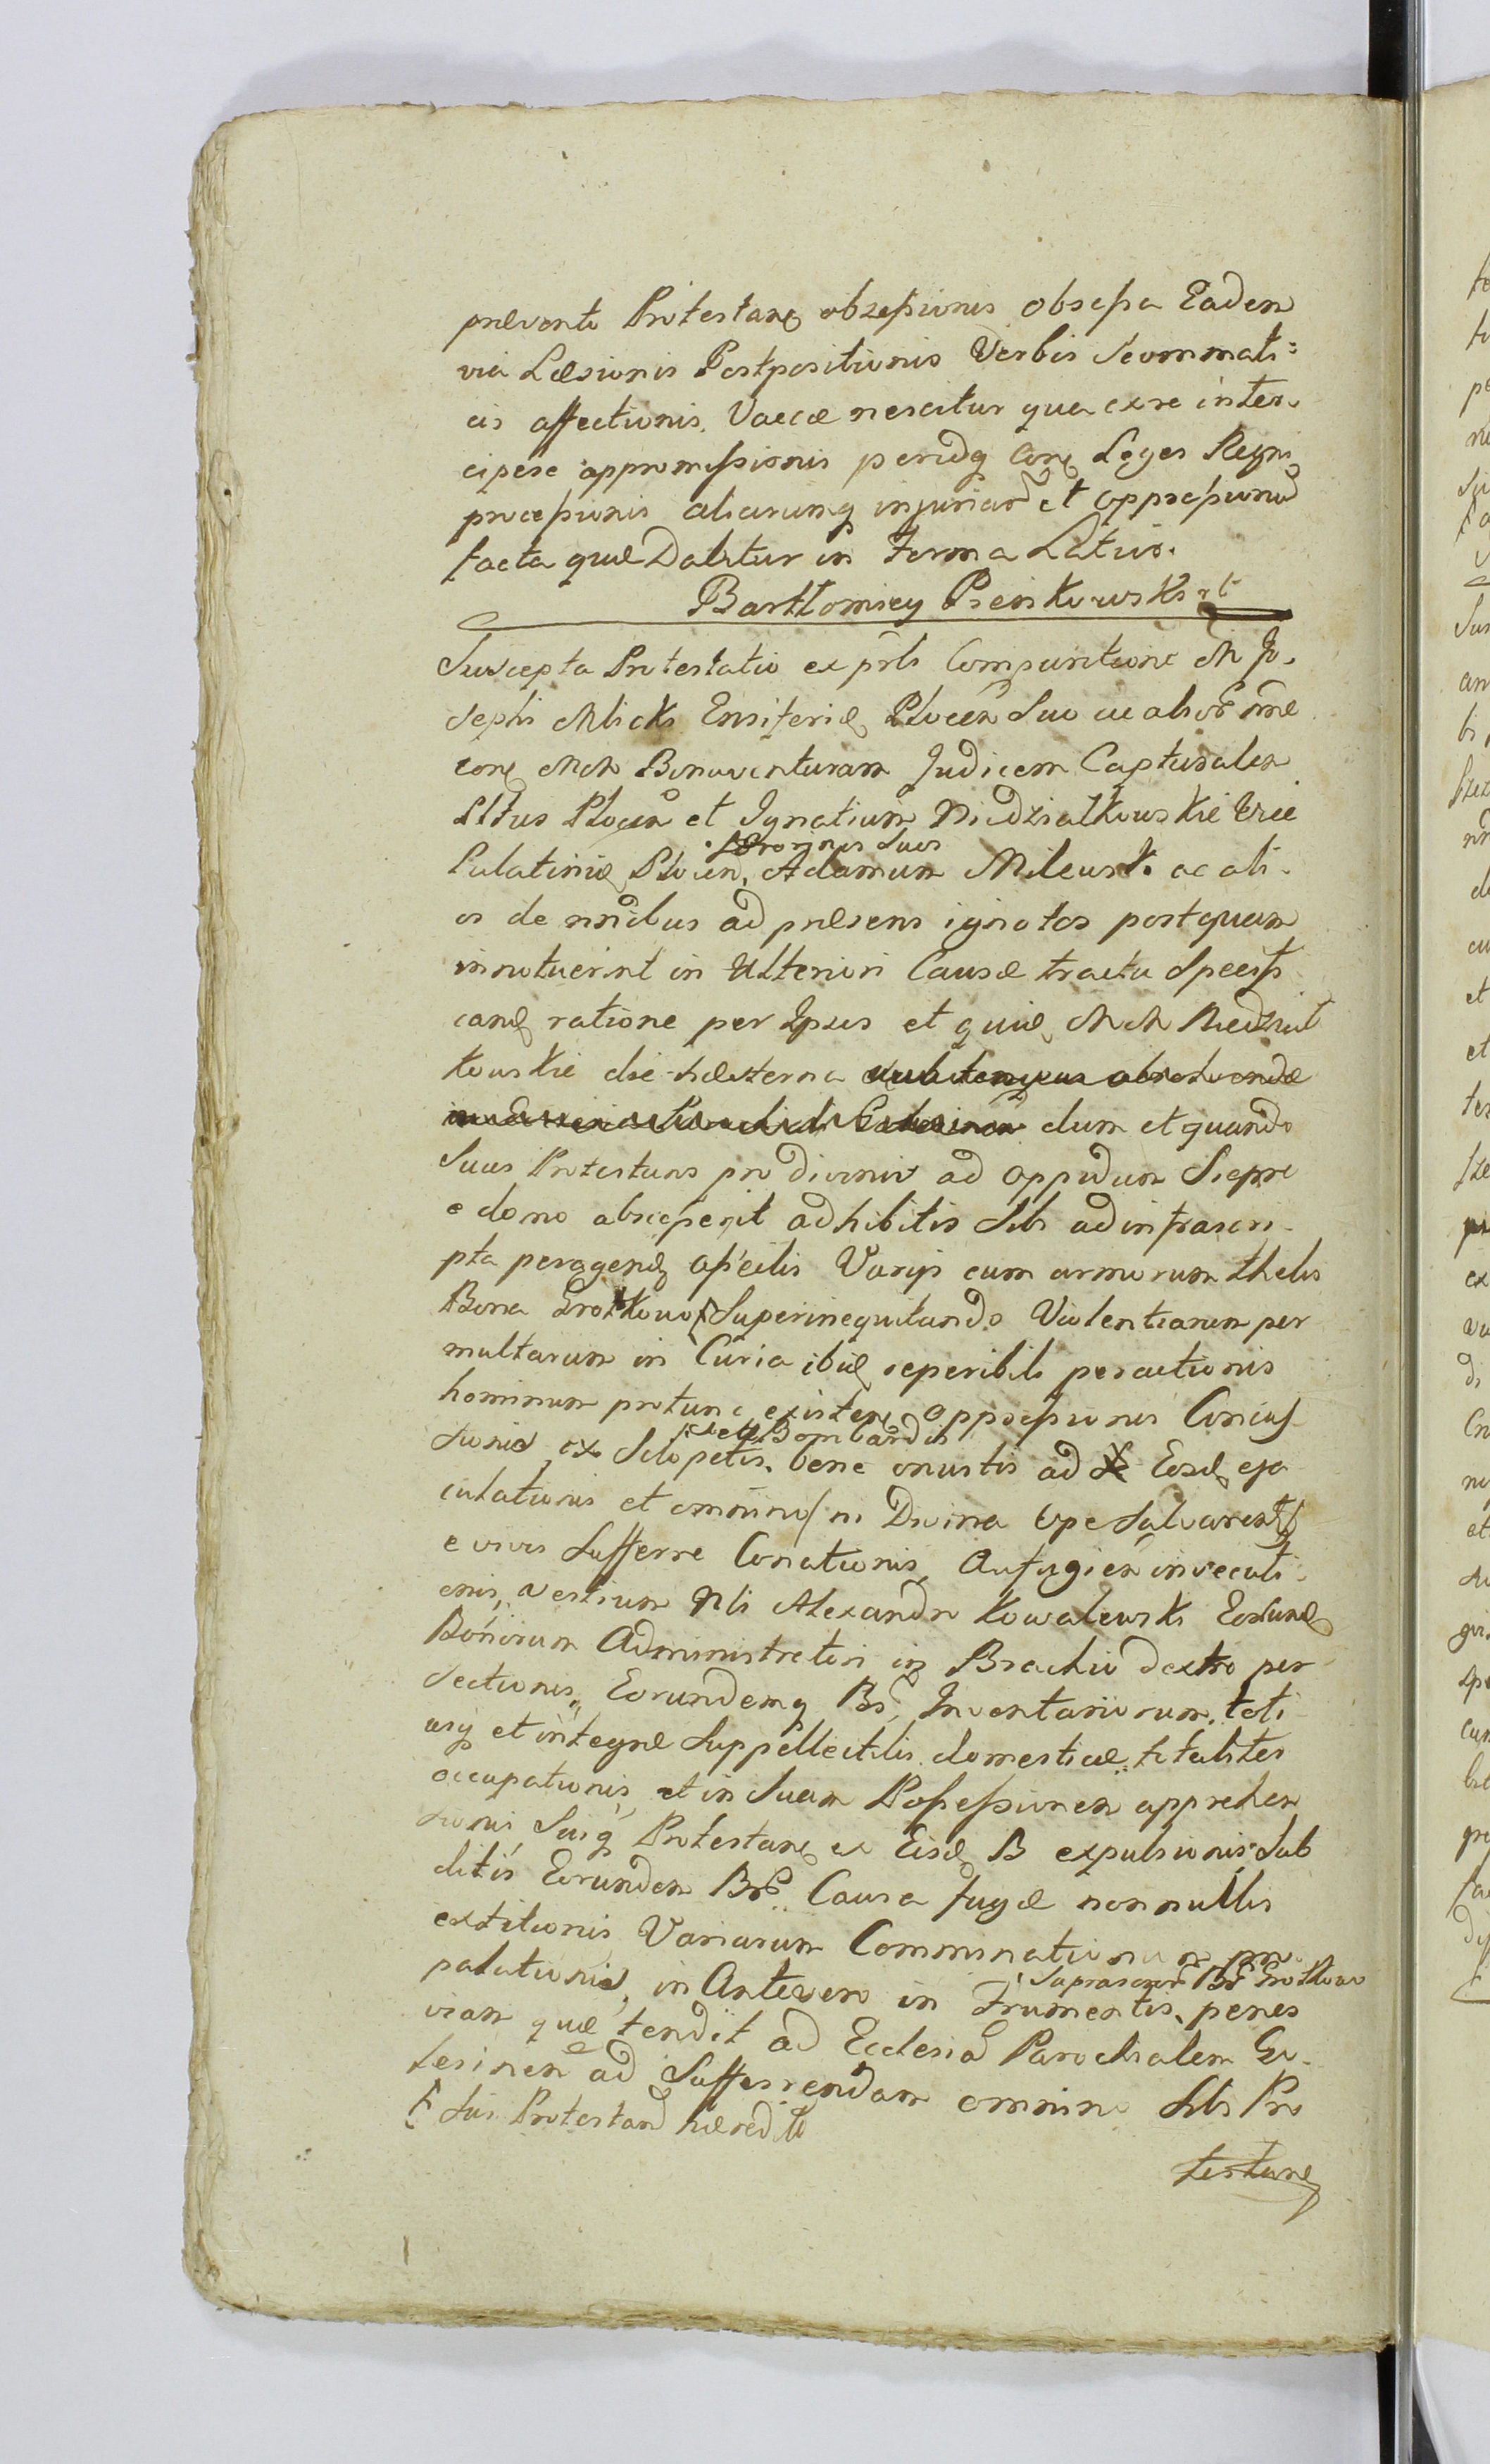 prævento Protestane obsessionis obsessa Eadem
via Læsionis Postpositionis Verbis Scommati=
cis affectionis. Vaccæ nescitur qua ex re inter
cipere appromissionis peridq Cone Leges Regni
processionis aliarumq injuriar et oppressionu
facta quæ Dabitur in Forma Latius.
Barttomiey Pienkowski
Suscepta Protestatio ex prti Comparitione M Jo
sephi Mlicki Ensiferie Plocen Suo ac alior nne
cone MM Bonaventuram Judicem Capturalem
Pltus Plocen et Ignatium Niedzialkowskie
Palatinie Plocen, Adamum Milewsk. ac ali
Sororinos Suos
os de nnibus ad præsens ignotos postquam
innotuerint in Ulteriori Causæ tractu Specifi
cand ratione per Ipsos et quid MM Niedzial
kowskie die hesterna dum et quando
Suus Protestans pro divinis ad oppidum Sieprc
e domo abscesserit adhibitis Sibi ad infrascri
pta peragend asseclis Varijs cum armorum thelis
Bona Grotkowo Superinequitando Violentiarum per
multarum in Curia ibid reperibili percutionis
hominum protunc existen oppressionis Concus
sionis ex Sclopetis bene onustis ad Eosd eja
et Bombardis
culationis et omnino ni Divina Ope Salvarent
e vivis Sufferre Conationis, Aufugien insecuti
onis, vestium Nli Alexandri Kowalewski Eorund
Bonorum Administratori in Brachio dextro per
sectionis, Eorundemq Br Inventariorum, toti
usq et integræ Suppellectilis domesticæ totaliter
occupationis et in Suam Possessionem apprehen
sionis Suiq Protestans ex Eisd B expulsionis Sub
ditis Eorundem Br Causa fugæ nonnullis
extitionis Variarum Comminationum pro
palationis, in Antevero in Frumentis penes
Suprascrip Br Grotkowo
viam quæ tendit ad Ecclesia Parochialem Go
lesinen ad Sufferrendam omnino Sibi Pro
Sui Protestand hæredit
testand